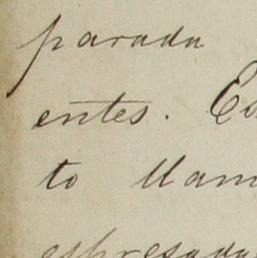 parada
entes. Es
to llam
espresada